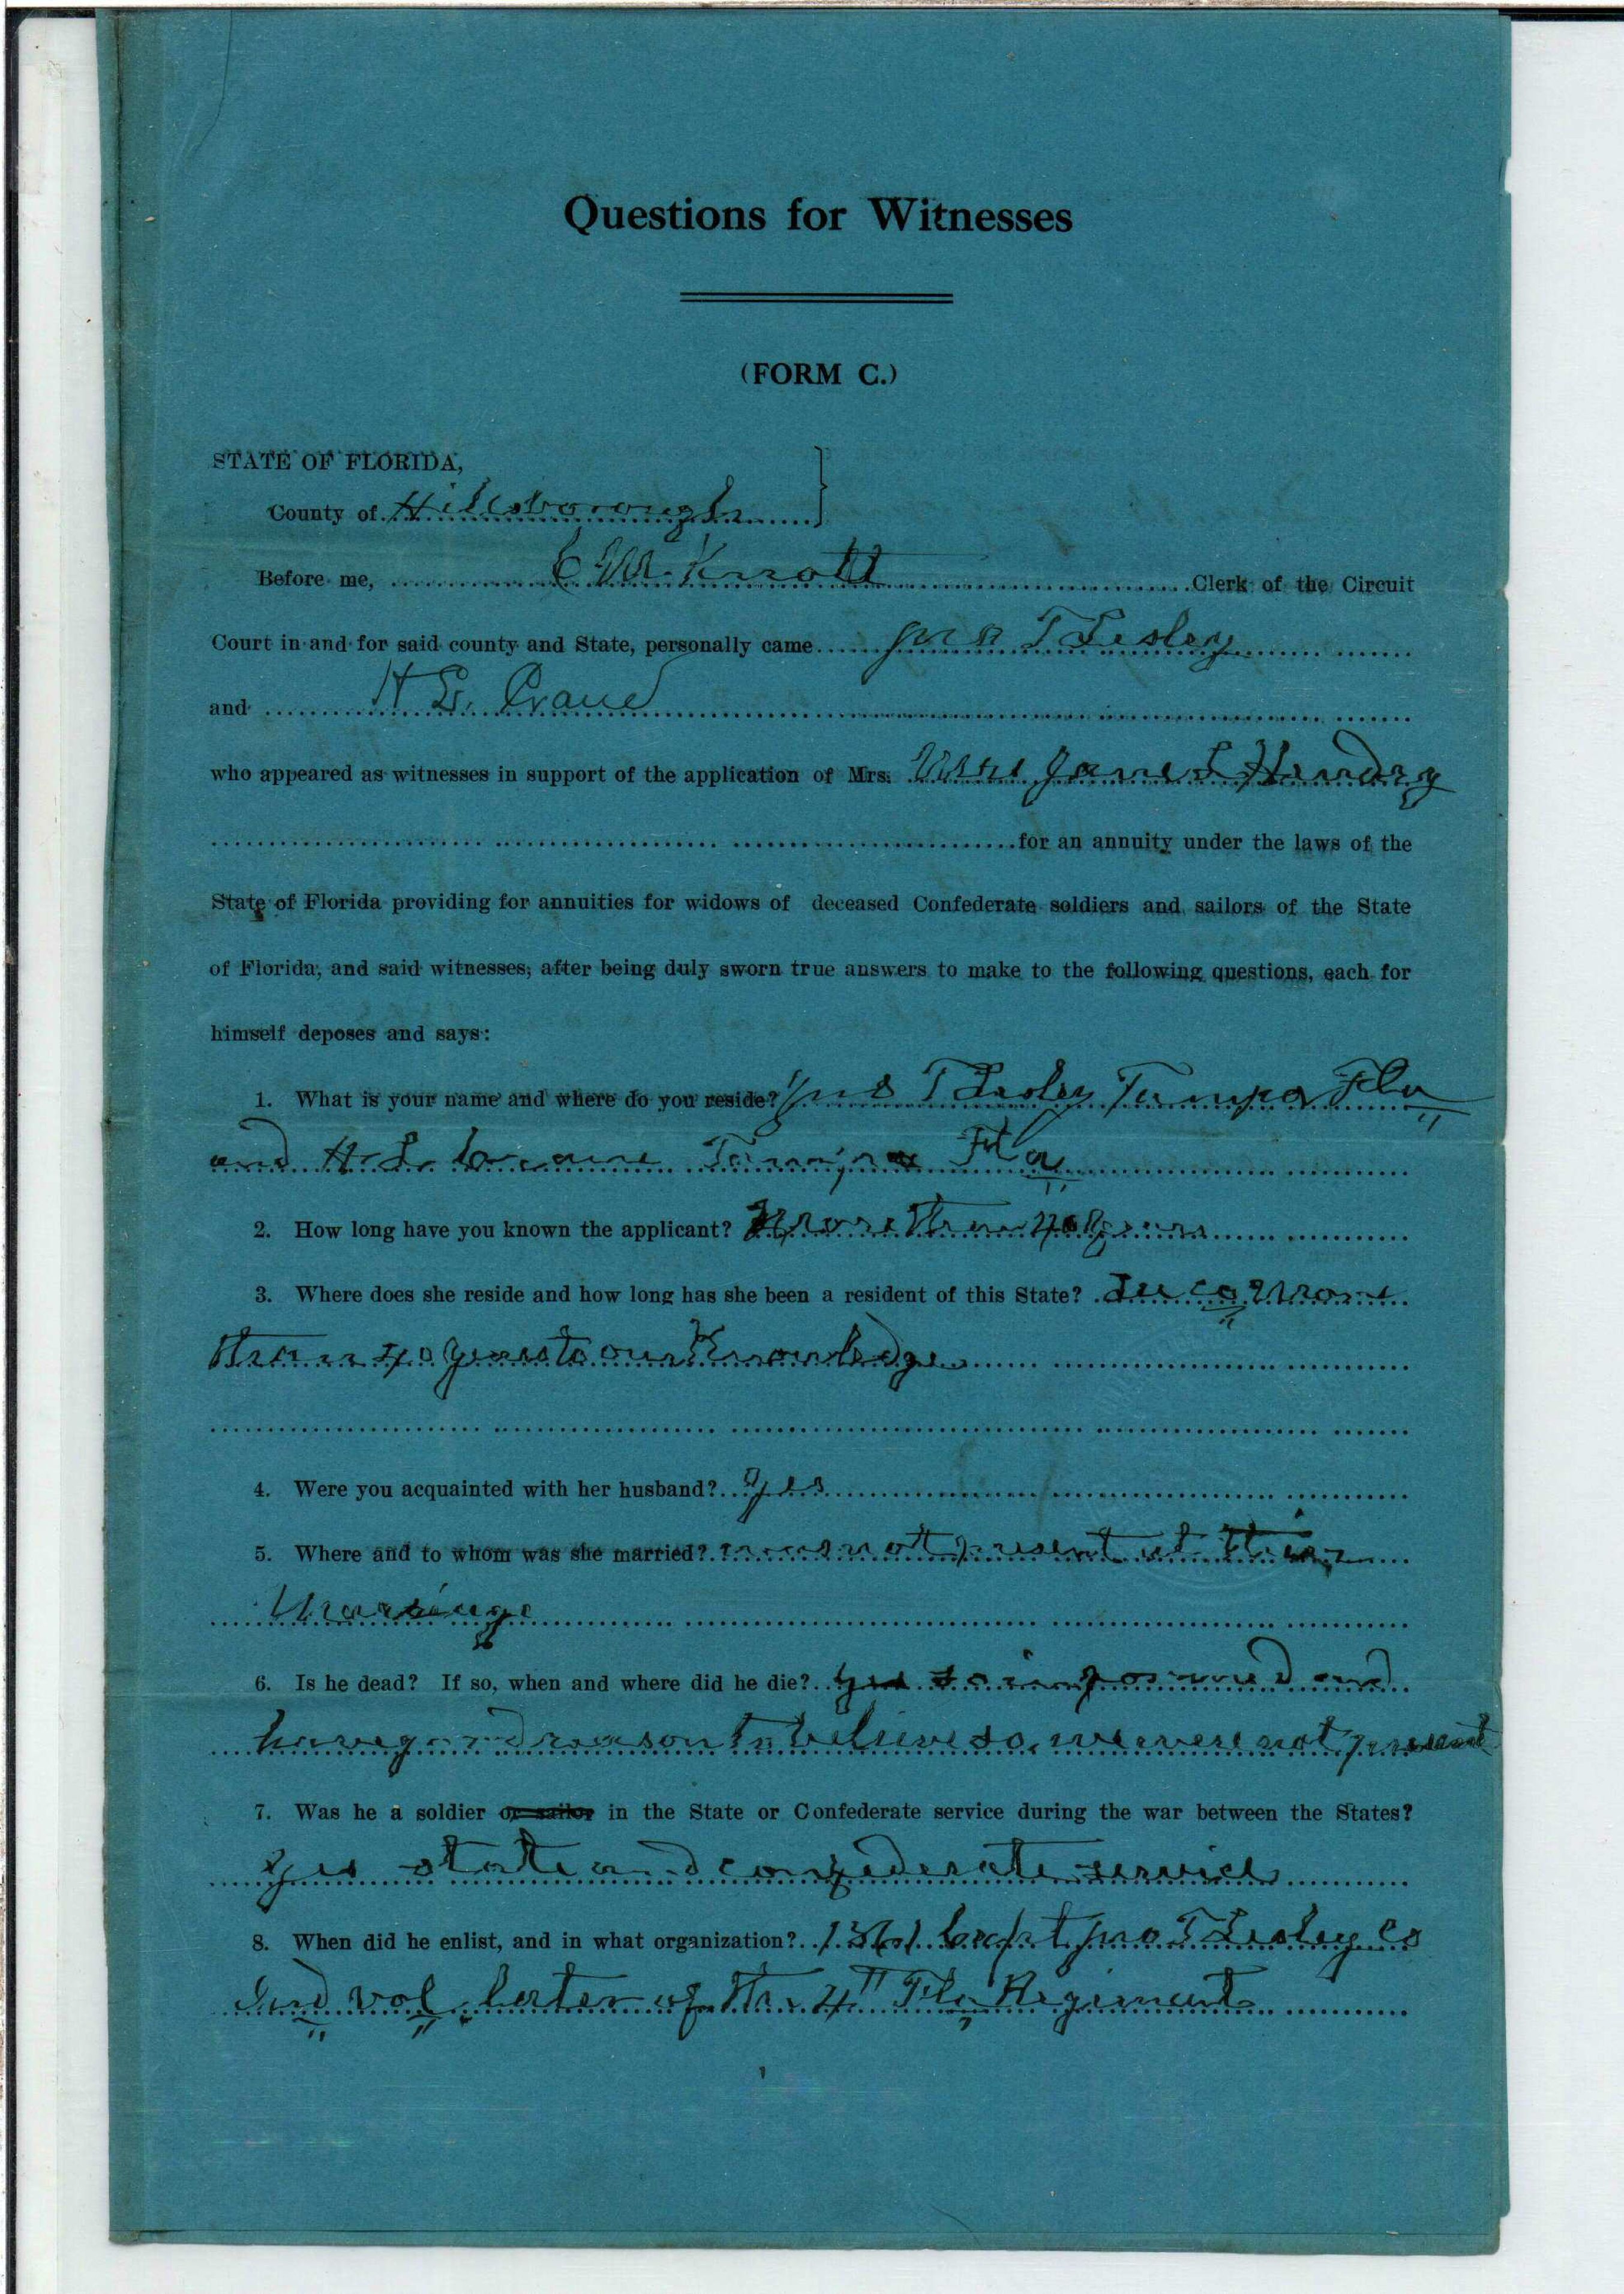 Questions for Witnesses
(FORM C.)
STATE OF FLORIDA,
County of Hillsborough
Before me, C M Knott Clerk of the Circuit
Court in and for said county and State, personally came Jno T Lesley
and H L. Crane
who appeared as witnesses in support of the application of Mrs. Jane L Hendry
for an annuity under the laws of the
State of Florida providing for annuities for widows of deceased Confederate soldiers and sailors of the State
of Florida, and said witnesses, after being duly sworn true answers to make to the following questions, each for
himself deposes and says:
1. What is your name and where do you reside? Jno T Lesley Tampa Fla
and H. L. Crane Tampa Fla
2. How long have you known the applicant? More than 40 years
3. Where does she reside and how long has she been a resident of this State? Lee co more
than 40 years to our Knowledge
4. Were you acquainted with her husband? yes
5. Where and to whom was she married? was not present at their
Marriage
6. Is he dead? If so, when and where did he die? yes so informed and
have good reason to believe so, we were not present
7. Was he a soldier or sailor in the State or Confederate service during the war between the States?
yes state and confederate service
8. When did he enlist, and in what organization? 1861 Capt Jno T Lesley Co
Ind vol. later of the 4" Fla Regiment